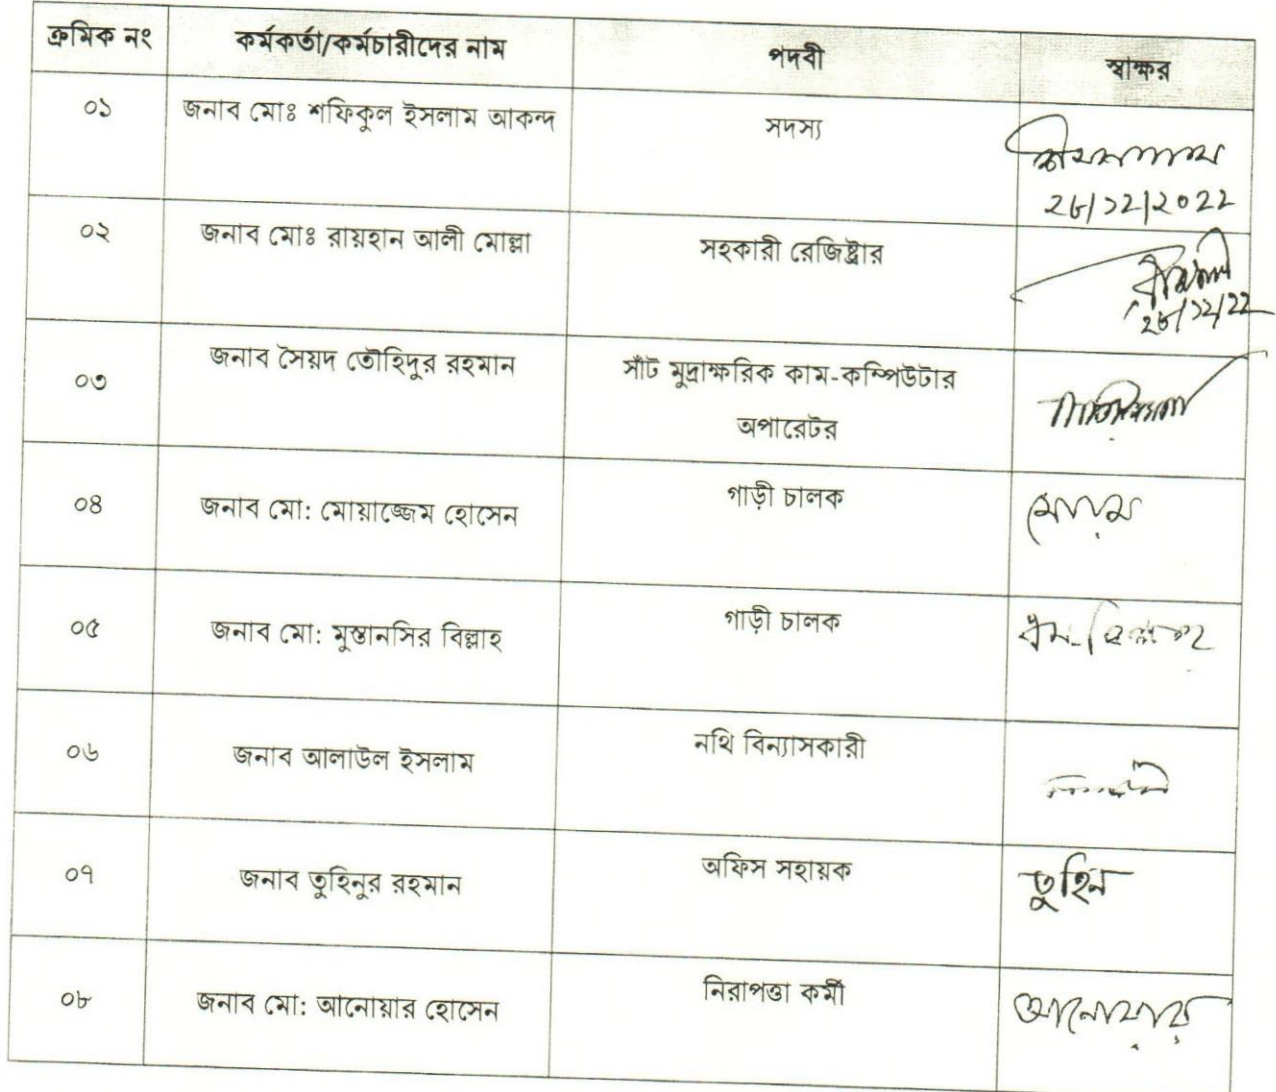 ক্রমিক নং কর্মকর্তা/কর্মচারীদের নাম পদবী স্বাক্ষর
০১ জনাব মোঃ শফিকুল ইসলাম আকন্দ সদস্য
২৮/১২/২০২২
০২ জনাব মোঃ রায়হান আলী মোল্লা সহকারী রেজিষ্ট্রার
২৮/১২/২২
০৩ জনাব সৈয়দ তৌহিদুর রহমান সাঁট মুদ্রাক্ষরিক কাম-কম্পিউটার
অপারেটর
০৪ জনাব মো: মোয়াজ্জেম হোসেন গাড়ী চালক
০৫ জনাব মো: মুস্তানসির বিল্লাহ গাড়ী চালক
০৬ জনাব আলাউল ইসলাম নথি বিন্যাসকারী
০৭ জনাব তুহিনুর রহমান অফিস সহায়ক তুহিন
০৮ জনাব মো: আনোয়ার হোসেন নিরাপত্তা কর্মী আনোয়ার